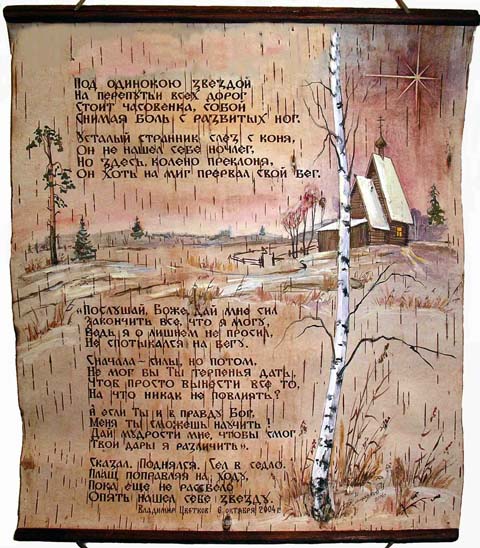 Под одинокою звездой
На перепутьи всех дорог
Стоит часовенка, собой
Снимая боль с разбитых ног.
Усталый странник слез с коня,
Он не нашел себе ночлег.
Но здесь, колено преклоня,
Он хоть на миг прервал свой бег.
«Послушай, Боже, дай мне сил
Закончить все, что я могу,
Ведь я о лишнем не просил,
Не спотыкался на бегу.
Сначала – силы, но потом,
Не мог бы Ты терпенья дать,
Чтоб просто вынести все то,
На что никак не повлиять?
И если Ты и в правду Бог,
Меня Ты сможешь научить!
Дай мудрости мне, чтобы смог
Твои дары я различить».
Сказал. Поднялся. Сел в седло.
Плащ поправляя на ходу,
Пока еще не рассвело
Опять нашел себе звезду.
Владимир Цветков 6 октября 2004г